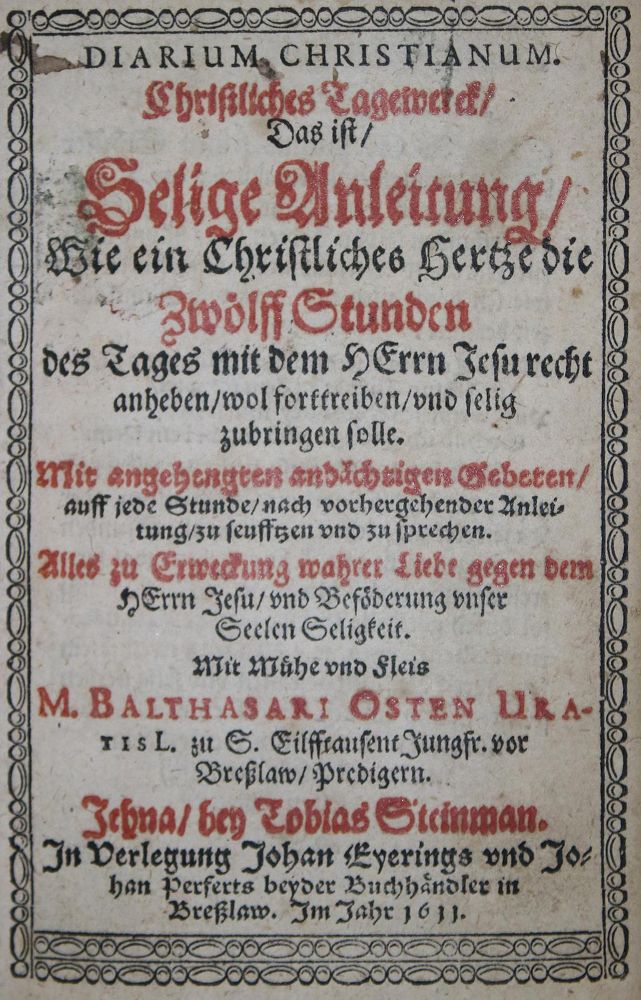 DIARIUM CHRISTIANUM.
Christliches Tagewerck/
Das ist/
Selige Anleitung/
Wie ein Christliches Hertze die
Zwölff Stunden
des Tages mit dem HErrn Jesu recht
anheben/wol forttreiben/vnd selig
zubringen solle.
Mit angehengten andächtigen Gebeten/
auff jede Stunde/nach vorhergehender Anlei-
tung/zu seufftzen vnd zu sprechen.
Alles zu Erweckung wahrer Liebe gegen dem
HErrn Jesu/vnd Beföderung vnser
Seelen Seligkeit.
Mit Mühe vnd Fleis
M. BALTHASARI OSTEN URA-
TISL. zu S. Eilfftausent Jungfr. vor
Breßlaw/Predigern.
Jehna/ bey Tobias Steinman.
In Verlegung Johan Eyerings vnd Jo-
han Perferts beyder Buchhändler in
Breßlaw. Im Jahr 1611.